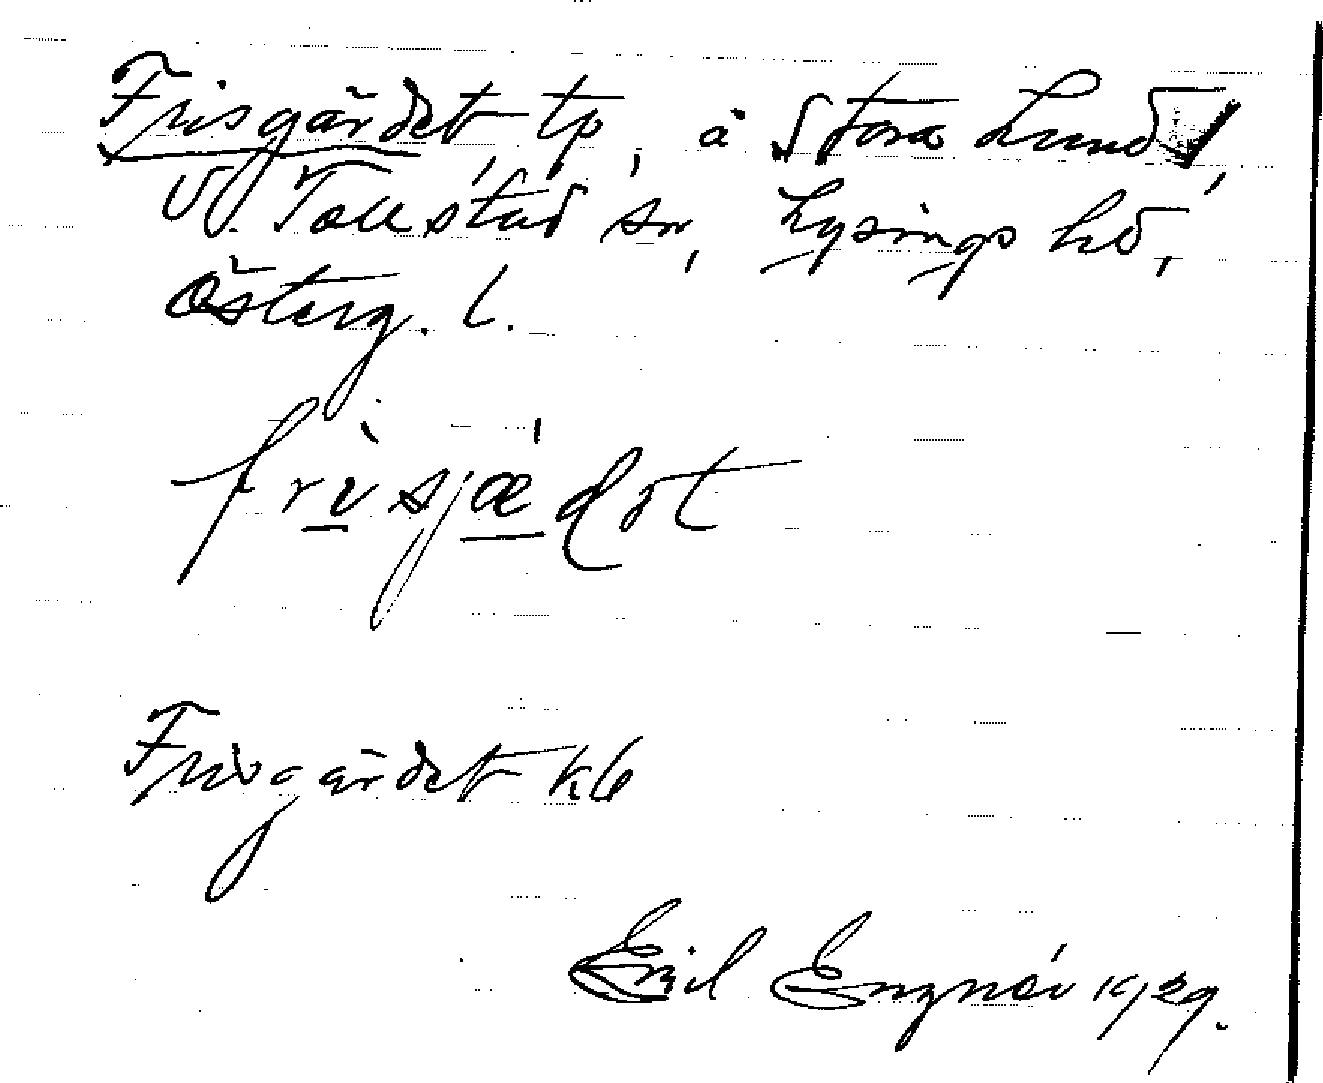 Frisgärdet, tp, å Stora Lund,
V. Tollstad sn, Lysings hd,
Österg. l.
frìsjæ'dət
Frisgärdet kb
1929.